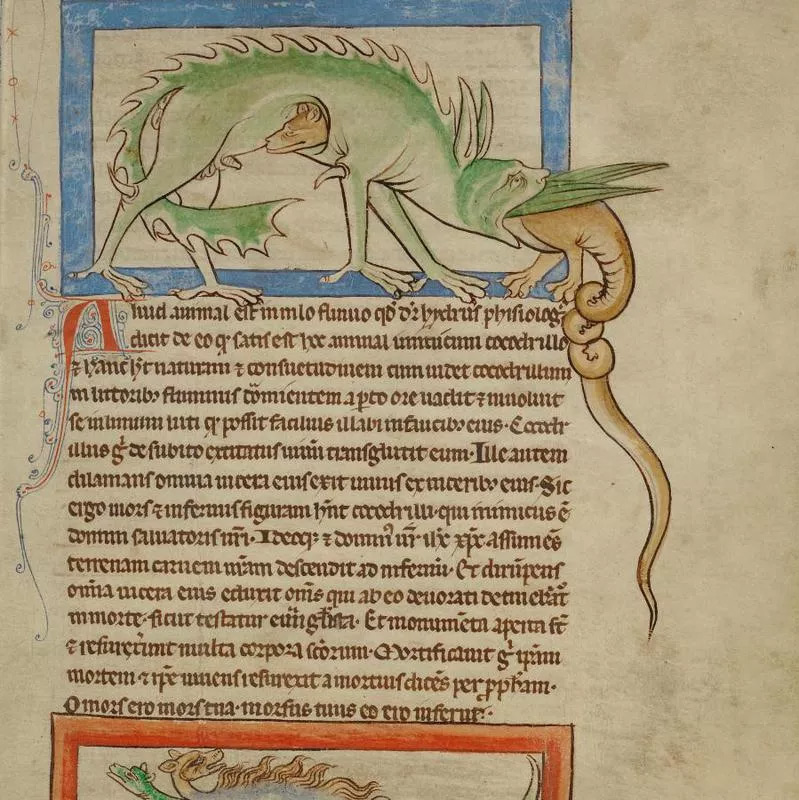 Aliud animal est in nilo flumio qd dr hydrus phisiolog
dicit de eo q satis est hoc animal inimicum cocodrillo
⁊ hanc ht naturam ⁊ consuetudinem cum uidet cocodrillum
in littorib fluminis dormientem aperto ore uadit ⁊ inuoluit
se in limum luti q possit facilius illabi in faucib eius. Cocodr
illus g de subito excitatus uiuum transglutit eum. Ille autem
dilanians omnia uiscera eius exit uiuus ex uiscerib eius. Sic
ergo mors ⁊ infernus figuram hnt cocodrilli. qui inimicus ē
domini saluatoris nri. Ideoq ⁊ dominus nr ihc xpc assumēs
terrenam carnem nram descendit ad infernū. Et dirūpens
omia uiscera eius eduxit omēs qui ab eo deuorati detinebāt
in morte. sicut testatur euāglista. Et monumēta aperta st
⁊ resurexerunt multa corpora scorum. Mortificauit g ipsam
mortem ⁊ ipe uiuens resurexit a mortuis dicēs per ppham.
O mors ero mors tua. morsus tuus ero inferne.